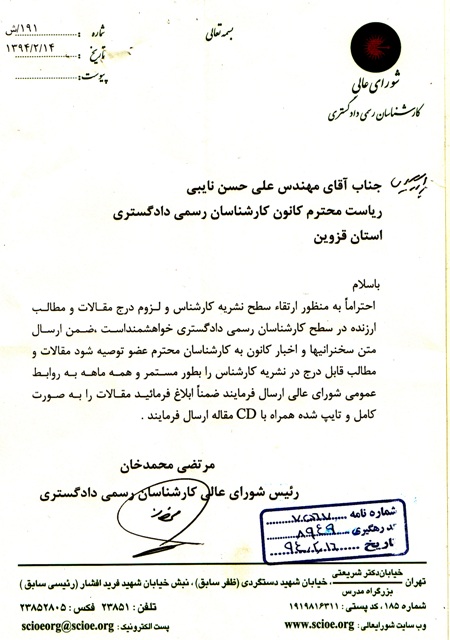 بسمه تعالی
شماره : ۱۹۱/ش
تاریخ : ۱۳۹۴/۲/۱۴
پیوست :
شورای عالی
کارشناسان رسمی دادگستری
جناب آقای مهندس علی حسن نایبی
ریاست محترم کانون کارشناسان رسمی دادگستری
استان قزوین
باسلام
احتراماً به منظور ارتقاء سطح نشریه کارشناس و لزوم درج مقالات و مطالب
ارزنده در سطح کارشناسان رسمی دادگستری خواهشمنداست، ضمن ارسال
متن سخنرانیها و اخبار کانون به کارشناسان محترم عضو توصیه شود مقالات و
مطالب قابل درج در نشریه کارشناس را بطور مستمر و همه ماهه به روابط
عمومی شورای عالی ارسال فرمایند ضمناً ابلاغ فرمائید مقالات را به صورت
کامل و تایپ شده همراه با CD مقاله ارسال فرمایند .
مرتضی محمدخان
رئیس شورای عالی کارشناسان رسمی دادگستری
شماره نامه
کد رهگیری ۸۹۴۹
تاریخ
تهران خیابان دکتر شریعتی ، خیابان شهید دستگردی (ظفر سابق) ، نبش خیابان شهید فرید افشار (رئیسی سابق)
بزرگراه مدرس
شماره ۱۸۵ ، کد پستی : ۱۹۱۹۸۱۶۳۱۱ تلفن : ۲۳۸۵۱ فکس : ۲۳۸۵۲۸۰۵
وب سایت شورایعالی : www.scioe.org پست الکترونیک : scioeorg@scioe.org